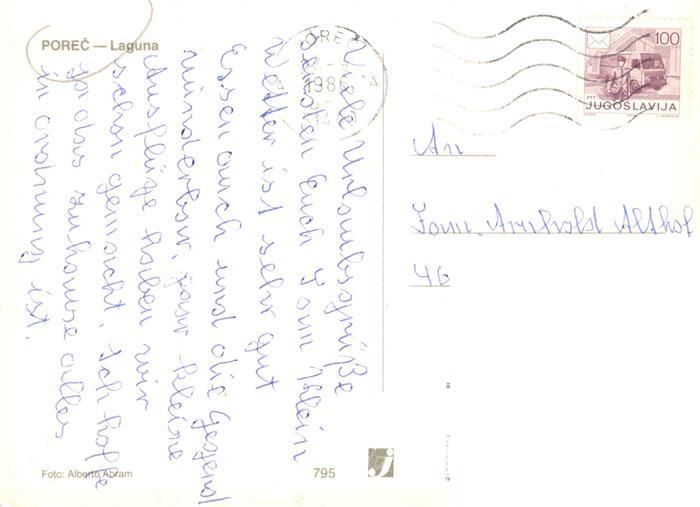 POREČ — Laguna
Viele Urlaubsgrüße
senden Euch Fam Klein
Wetter ist sehr gut
Essen auch und die Gegend
wunderbar, paar kleine
Ausflüge haben wir
schon gemacht. Ich hoffe
ja das zuhause alles
in ordnung ist.
Foto: Alberto Abram
795
1986
100
PTT
JUGOSLAVIJA
An
Fam. Althof
46